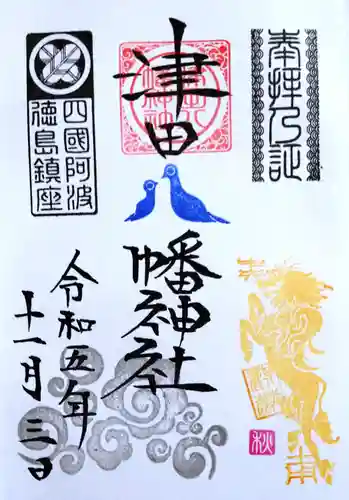 奉拝乃証
津田
八幡神社
四國阿波
徳島鎮座
令和五年
十一月三日
秋